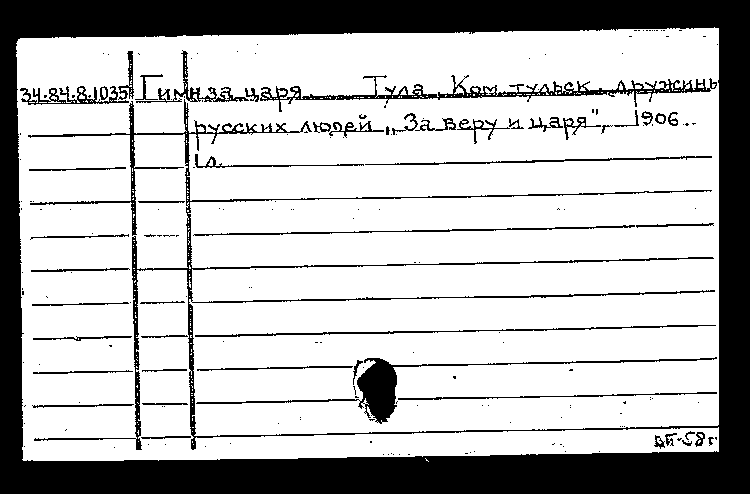 34.84.8.1035 Гимн за царя. Тула, Ком. тульск. дружины
русских людей „За веру и царя", 1906.
1 л.
ВП-58г